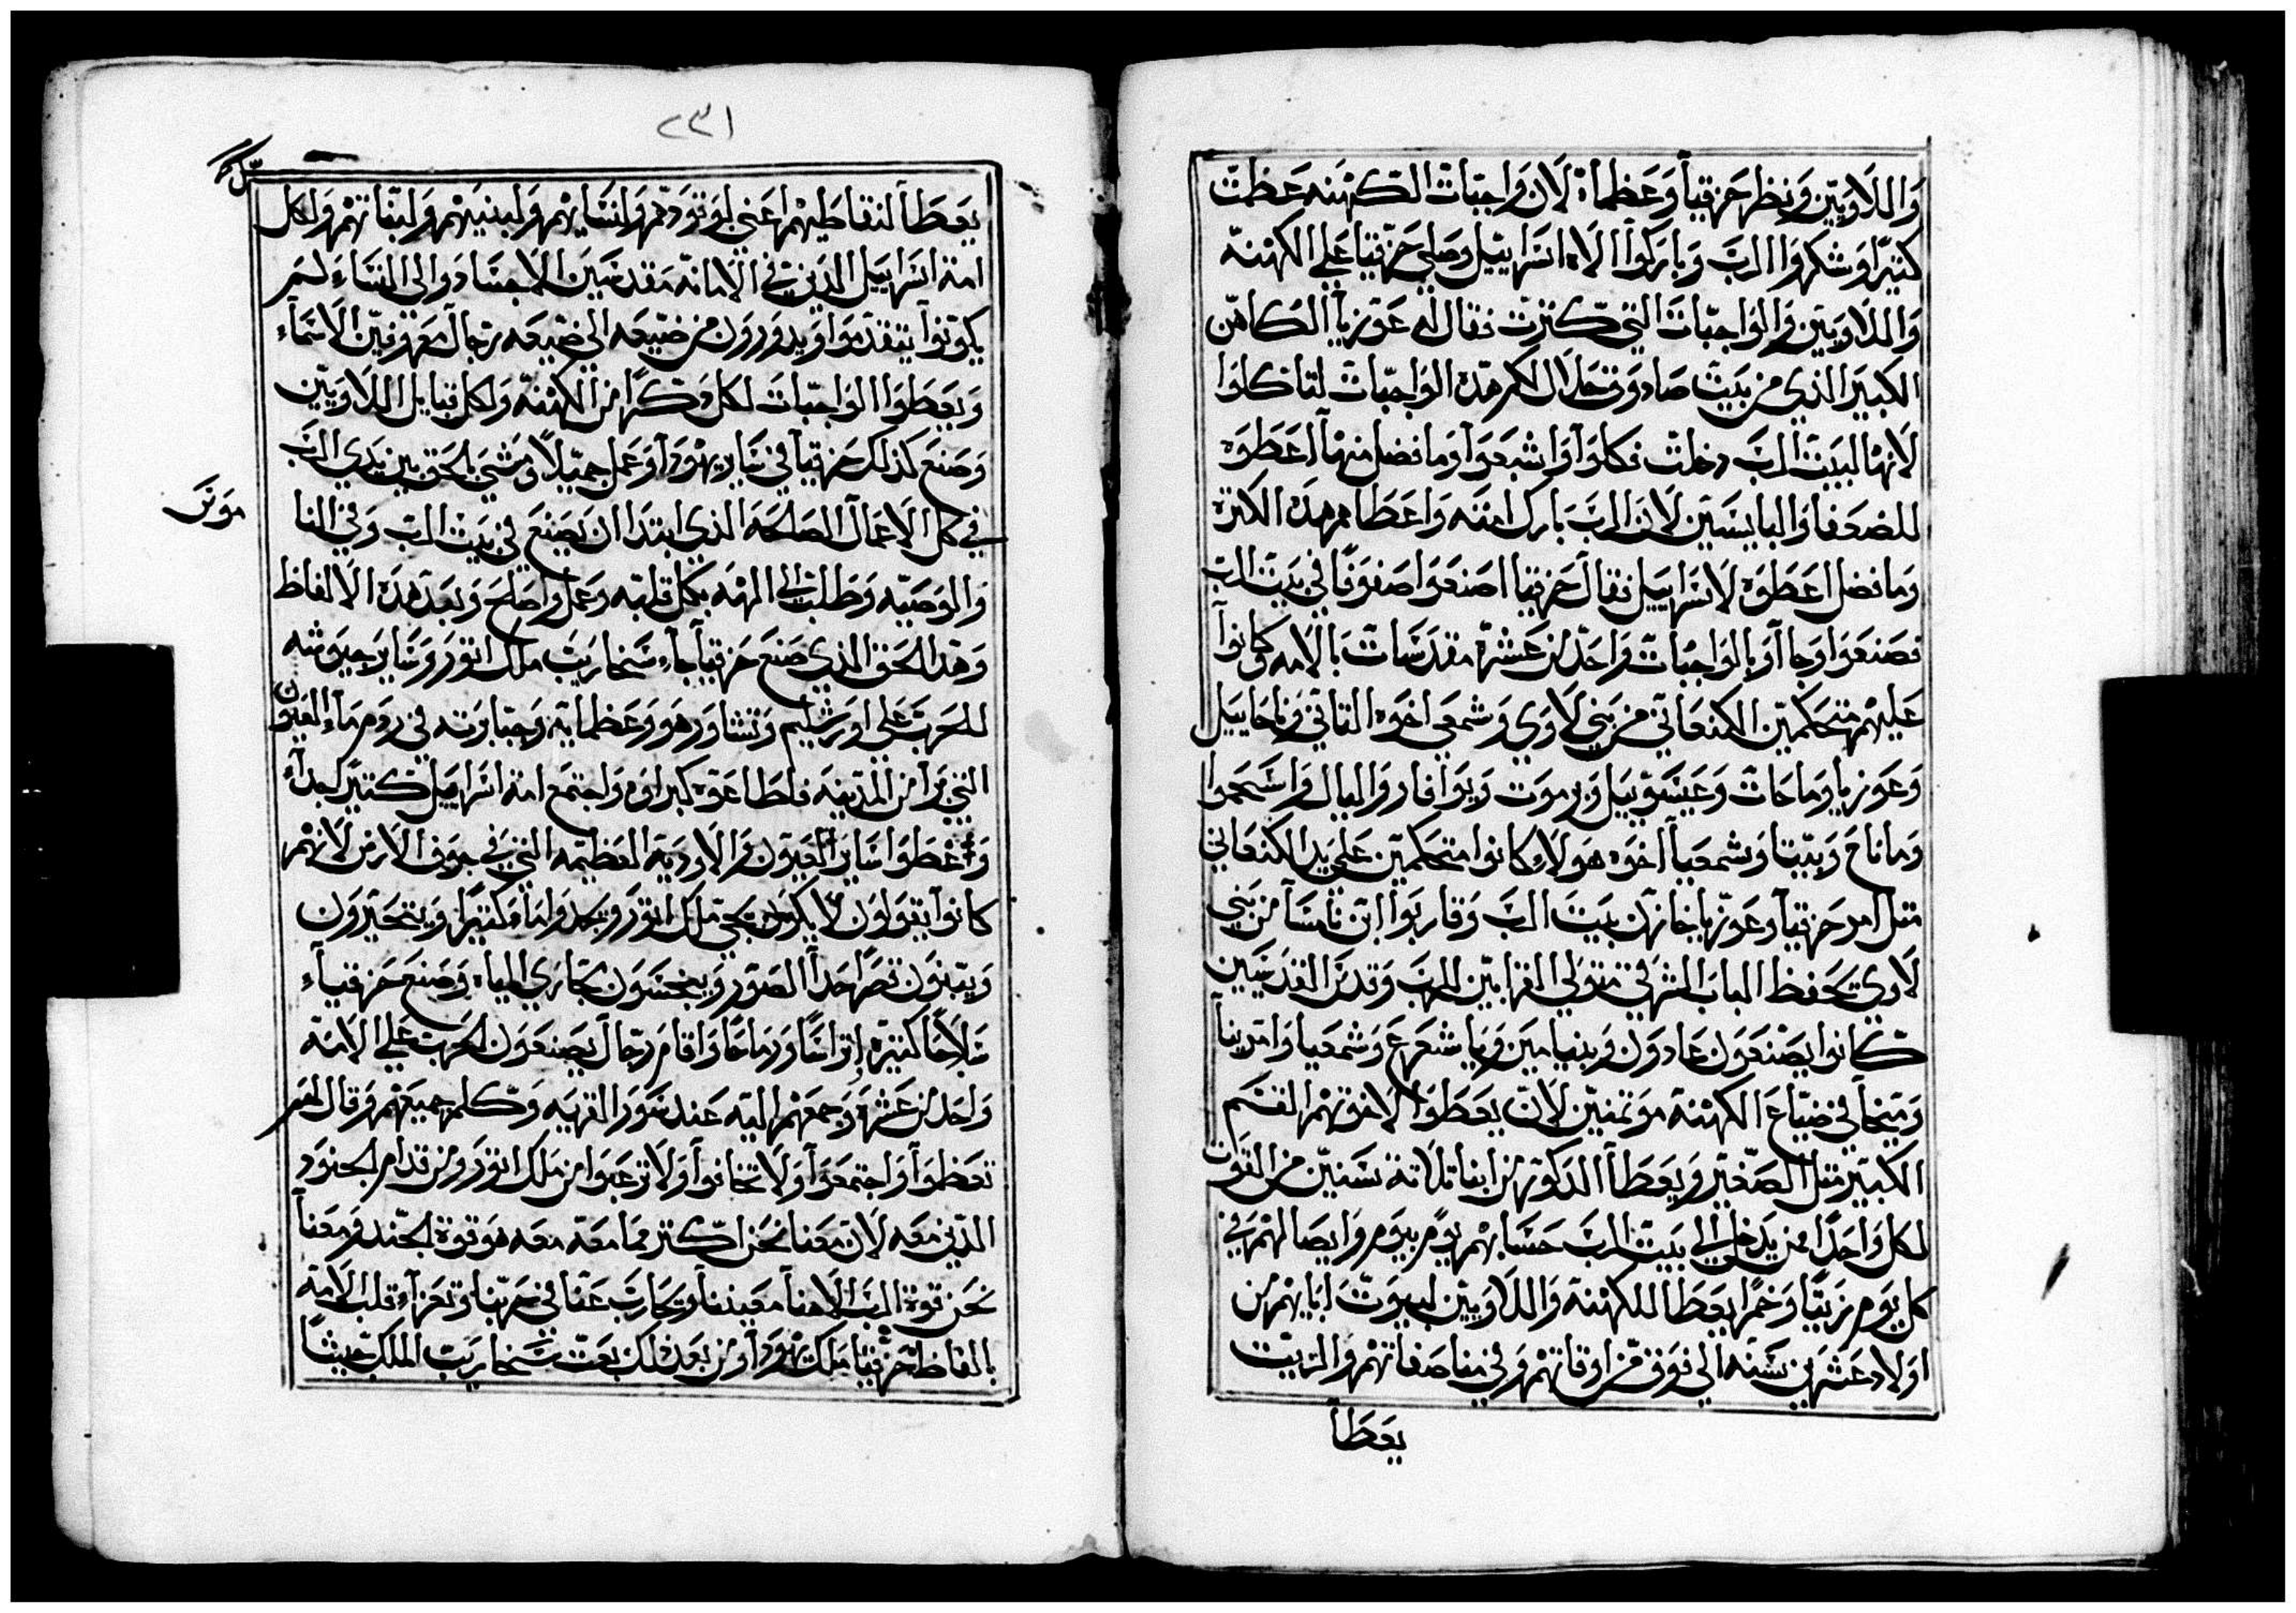 واللاويين ونظر حزقيا وعظماه لان واجبات الكهنه عظمت
كثيرا وشكروا الرب وباركوا الاه اسراييل وصلي حزقيا علي الكهنه
واللاويين والواجبات التي كنزت فقال له عوزيا الكاهن
الكبير الذي من بيت صادوق حلال لكم هده الواجبات لتاكلوا
لانها لبيت الرب دخلت فكلوا واشبعوا وما فضل منها اعطوه
للضعفا والبايسين لان الرب بارك امته واعطاهم هده الكتره
وما فضل اعطوه لاسراييل فقال حزقيا اصنعوا صفوفا في بيت الرب
فصنعوا وجاآوا بالواجبات واحد من عشرة مقدسات بالامه وكانوا
عليهم متحكمين الكنعاني من بني لاوي وشمعي اخوه التاني وناحاييل
وعوزيا وماحات وعيسوييل ويرموت ويوافاد والبال واسحموا
وماناح وبيتا وشمعيا اخوه هولاء كانوا متحكمين علي يد الكنعاني
متل امر حزقيا وعوزيا خازن بيت الرب وقاربوا ابن نامسا من بني
لاوي يحفظ الباب الشرقي متولي القرابين للرب وقدس القدسين
كانوا يصنعون عادون وبنيامين ويا شعرع وشمعيا وامرينا
وسخا في ضياع الكهنة موتمنين لان يعطوا لاخوتهم القسم
الكبير متل الصغير ويعطا الدكور من ابنا تلاتة سنين من القوات
لكل واحدا من يدخل الي بيت الرب حسابهم يوم بيوم وايضا لهم في
كل يوم زيتا وخمرا يعطا للكهنة واللاويين لبيوت ابايهم من
اولاد عشرين سنه الي فوق من اوقاتهم وفي مناصفاتهم والزيت
يعطا
٢٣١
يعطا لنقاطيهم اعني لوتودهم ولنسايهم ولبنيهم ولبناتهم ولكل
امة اسراييل الدين في الامانه مقدسين الاجساد والي النساء لم
يكونوا يتقدموا ويدورون من ضيعه الي ضيعه رجال معروفين الاسماء
ويعطوا الواجبات لكل دكرا من الكهنه ولكل قبايل اللاويين
وصنع كدلك حزقيا في ساير يهودا وعمل جميلا ومشي بالحق بين يدي الرب
في كل الاعمال الصالحه الذي ابتدا ان يصنع في بيت الرب وفي النا
موس
والوصيه وطلب الي الهه بكل قلبه وعمل واصلح وبعد هده الالفاظ
وهدا الحق الذي صنع حزقيا جاء سنحاريب ملك اتور وساير جيوشه
للحرب علي اورشليم وتشاور هو وعظمايه وجبابرته في ردم ماء العيون
التي برا من المدينه فاطاعوه كبراوه واجتمع امة اسراييل كتير جدا
وغطوا ساير العيون والاودية العظيمه التي في جوف الارض لانهم
كانوا يقولون لا يكون يجي ملك اتور ويجدوا ماء كتيرا ويتحيرون
ويبنون قصرا حدا الصور ويحسون مجاري المياه وصنع حزقيا
سلاحا كتيره اتراسا ورماحا واقام رجال يصنعون الحرب علي الامه
واحد من عشرة وجمعهم اليه عند سور القريه وكلم جميعهم وقال لهم
تعظموا واجتمعوا ولا تخافوا ولا ترعبوا من ملك اتور ومن قدام الجنود
الدين معه لان معنا نحن اكتر مما معه معه هو قوة الجند ومعنا
نحن قوة الرب الاهنا معيننا ويحارب عنا في حربنا وتعزا قلب الامه
بالفاظ حزقيا ملك يهودا ومن بعد دلك بعت سنحاريب الملك جيشا